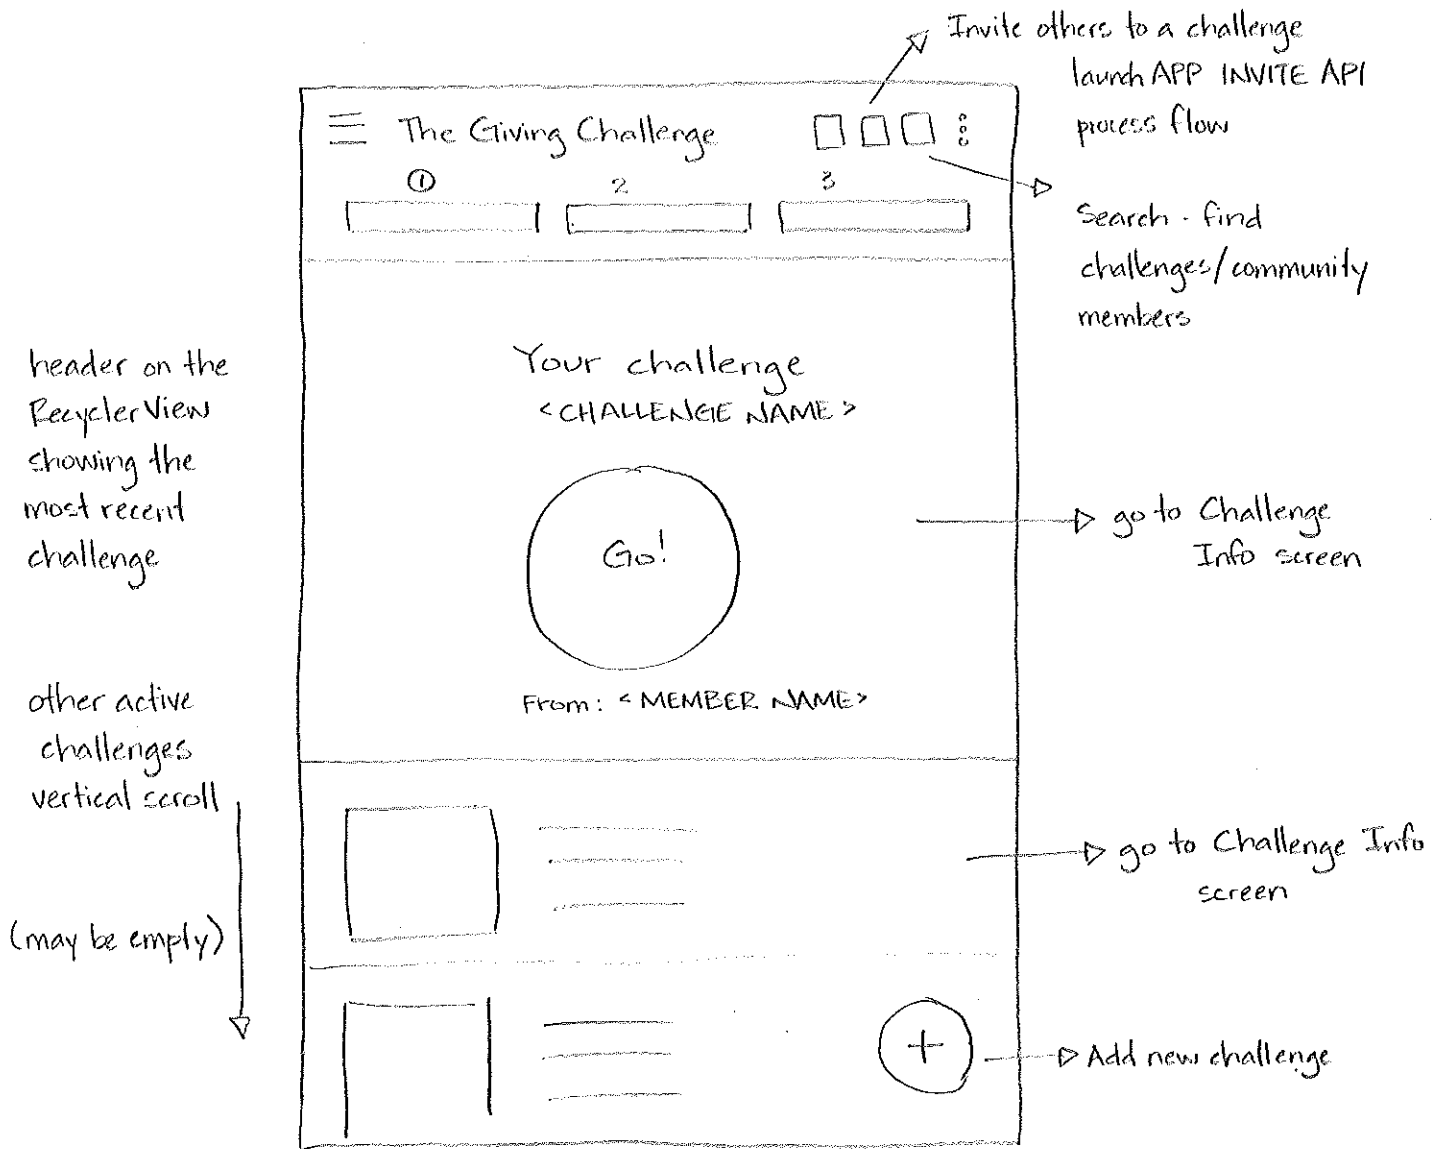 Invite others to a challenge
launch APP INVITE API
process flow
The Giving Challenge
1 2 3
Search - find
challenges/community
members
header on the
RecyclerView
showing the
most recent
challenge
Your challenge
<CHALLENGE NAME>
Go!
go to Challenge
Info screen
From: <MEMBER NAME>
other active
challenges
vertical scroll
(may be empty)
go to Challenge Info
screen
+
Add new challenge